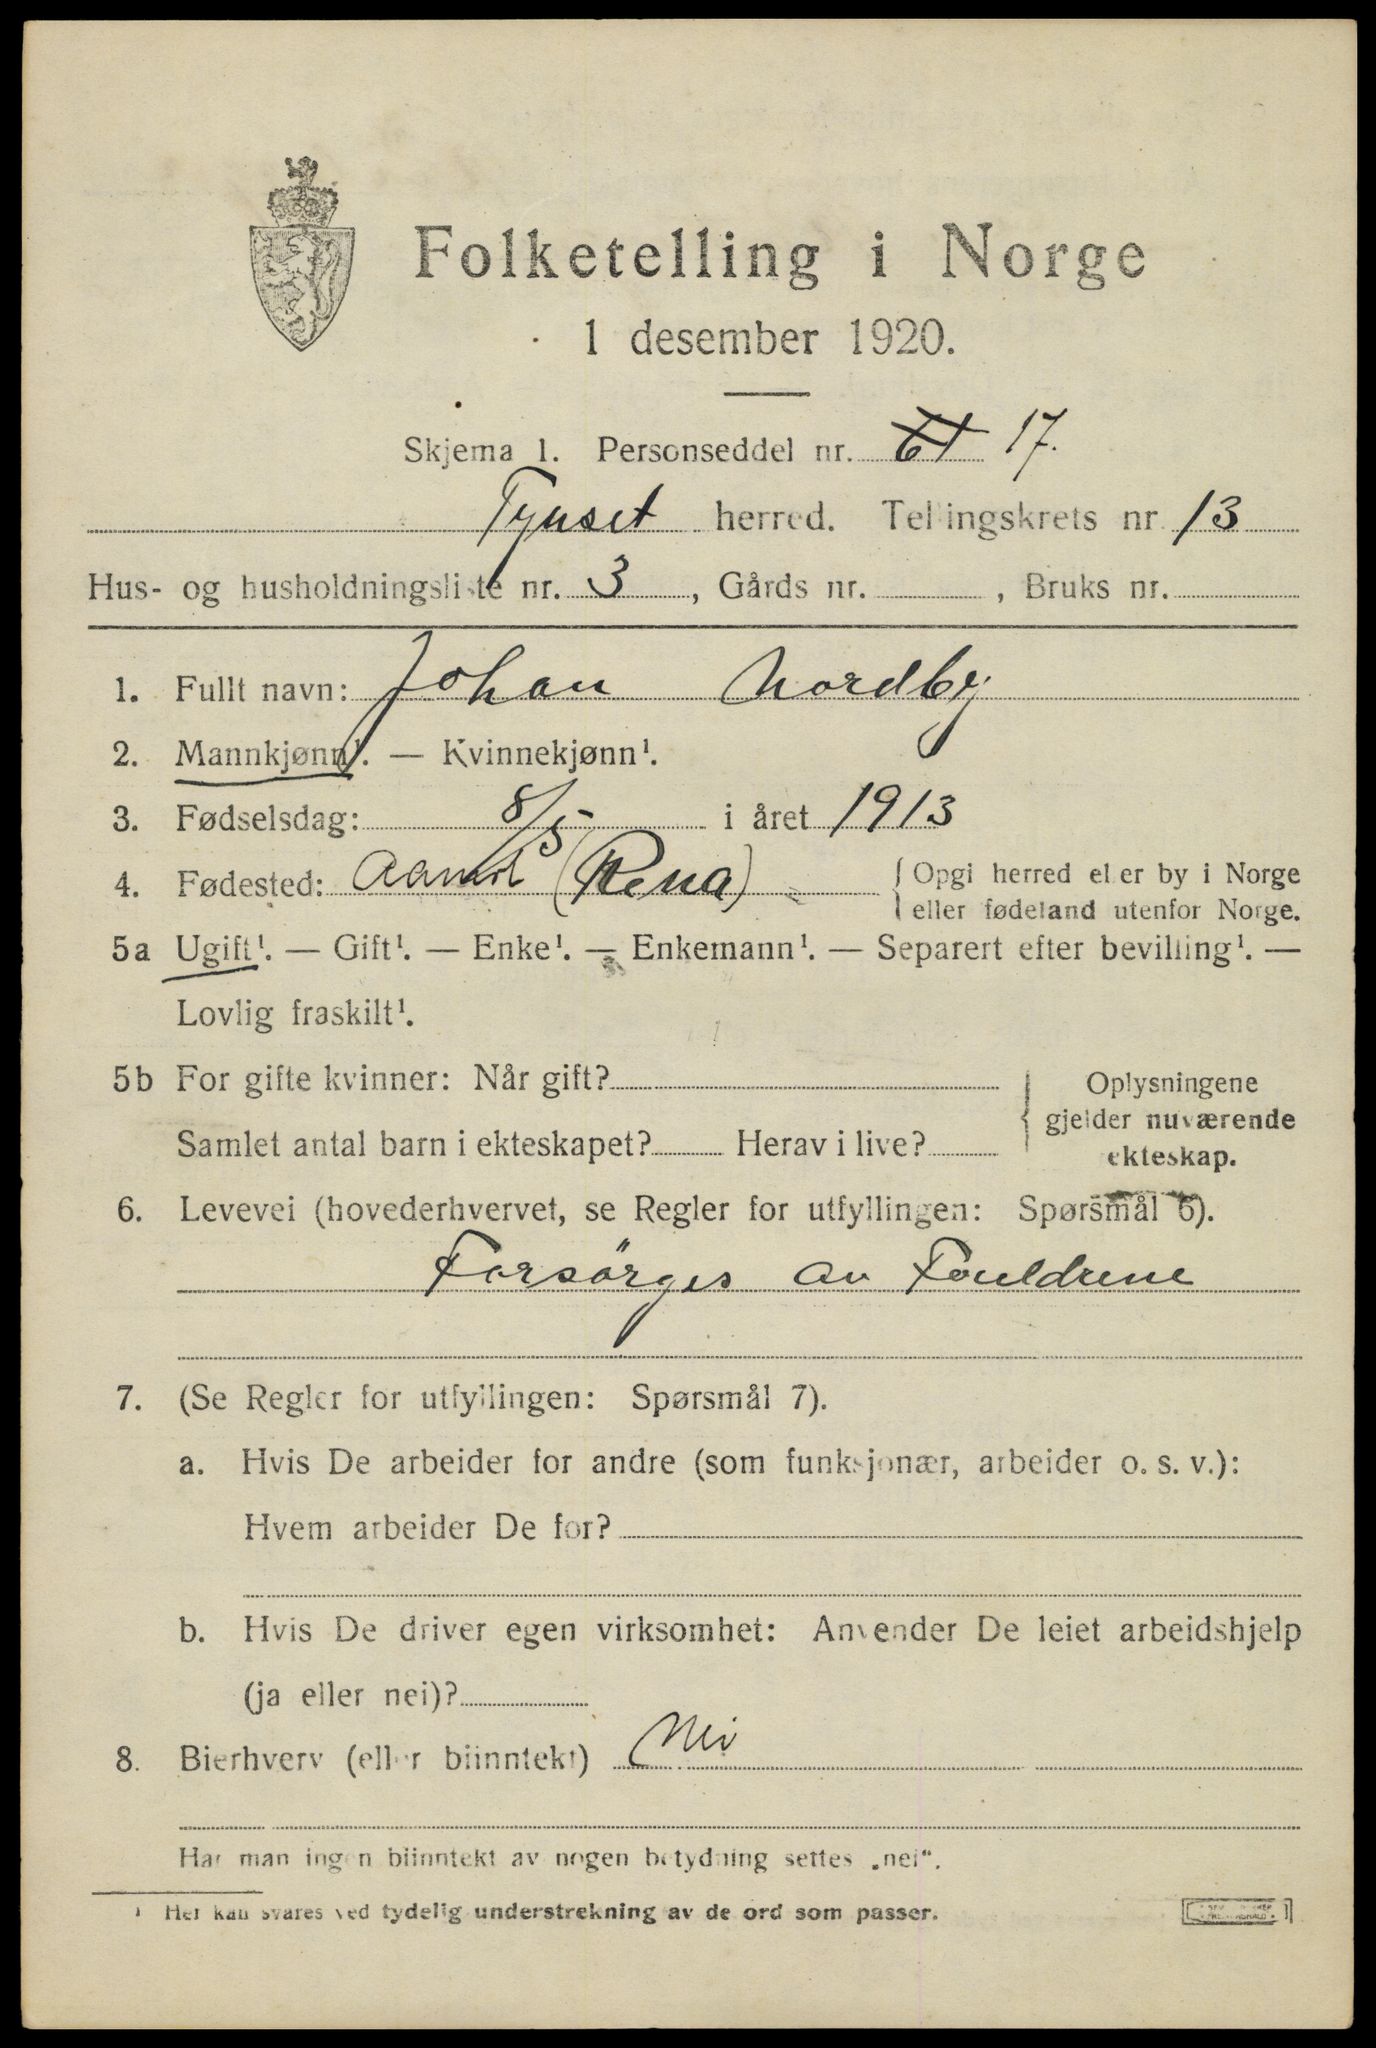 Folketelling i Norge
1 desember 1920.
Skjema 1. Personseddel nr. 17.
Tynset herred. Tellingskrets nr 13
Hus- og husholdningsliste nr. 3, Gårds nr. , Bruks nr.
1. Fullt navn: Johan Nordby
2. Mannkjønn¹. — Kvinnekjønn¹.
3. Fødselsdag: 8/5 i året 1913
4. Fødested: Aamot (Rena) { Opgi herred eller by i Norge
eller fødeland utenfor Norge.
5a Ugift¹. — Gift¹. — Enke¹. — Enkemann¹. — Separert efter bevilling¹. —
Lovlig fraskilt¹.
5b For gifte kvinner: Når gift?
Samlet antal barn i ekteskapet? Herav i live?
Oplysningene
gjelder nuværende
ekteskap.
6. Levevei (hovederhvervet, se Regler for utfyllingen: Spørsmål 6).
Forsörges av Foreldrene
7. (Se Regler for utfyllingen: Spørsmål 7).
a. Hvis De arbeider for andre (som funksjonær, arbeider o. s. v.):
Hvem arbeider De for?
b. Hvis De driver egen virksomhet: Anvender De leiet arbeidshjelp
(ja eller nei)?
8. Bierhverv (eller biinntekt) Nei
Har man ingen biinntekt av nogen betydning settes „nei“.
¹ Her kan svares ved tydelig understrekning av de ord som passer.